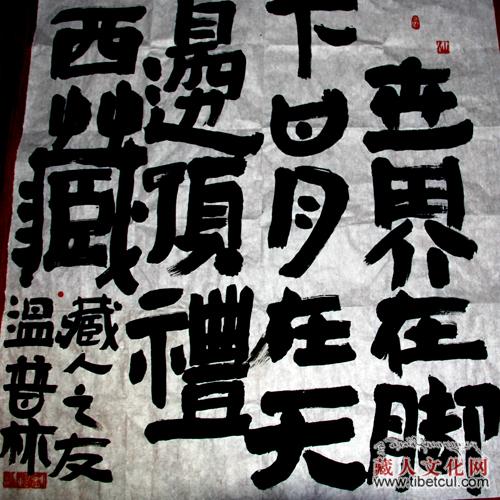 世界在脚
下日月在天
邊頂禮
西藏
藏人之友
溫普林
藏人文化网
www.tibetcul.com